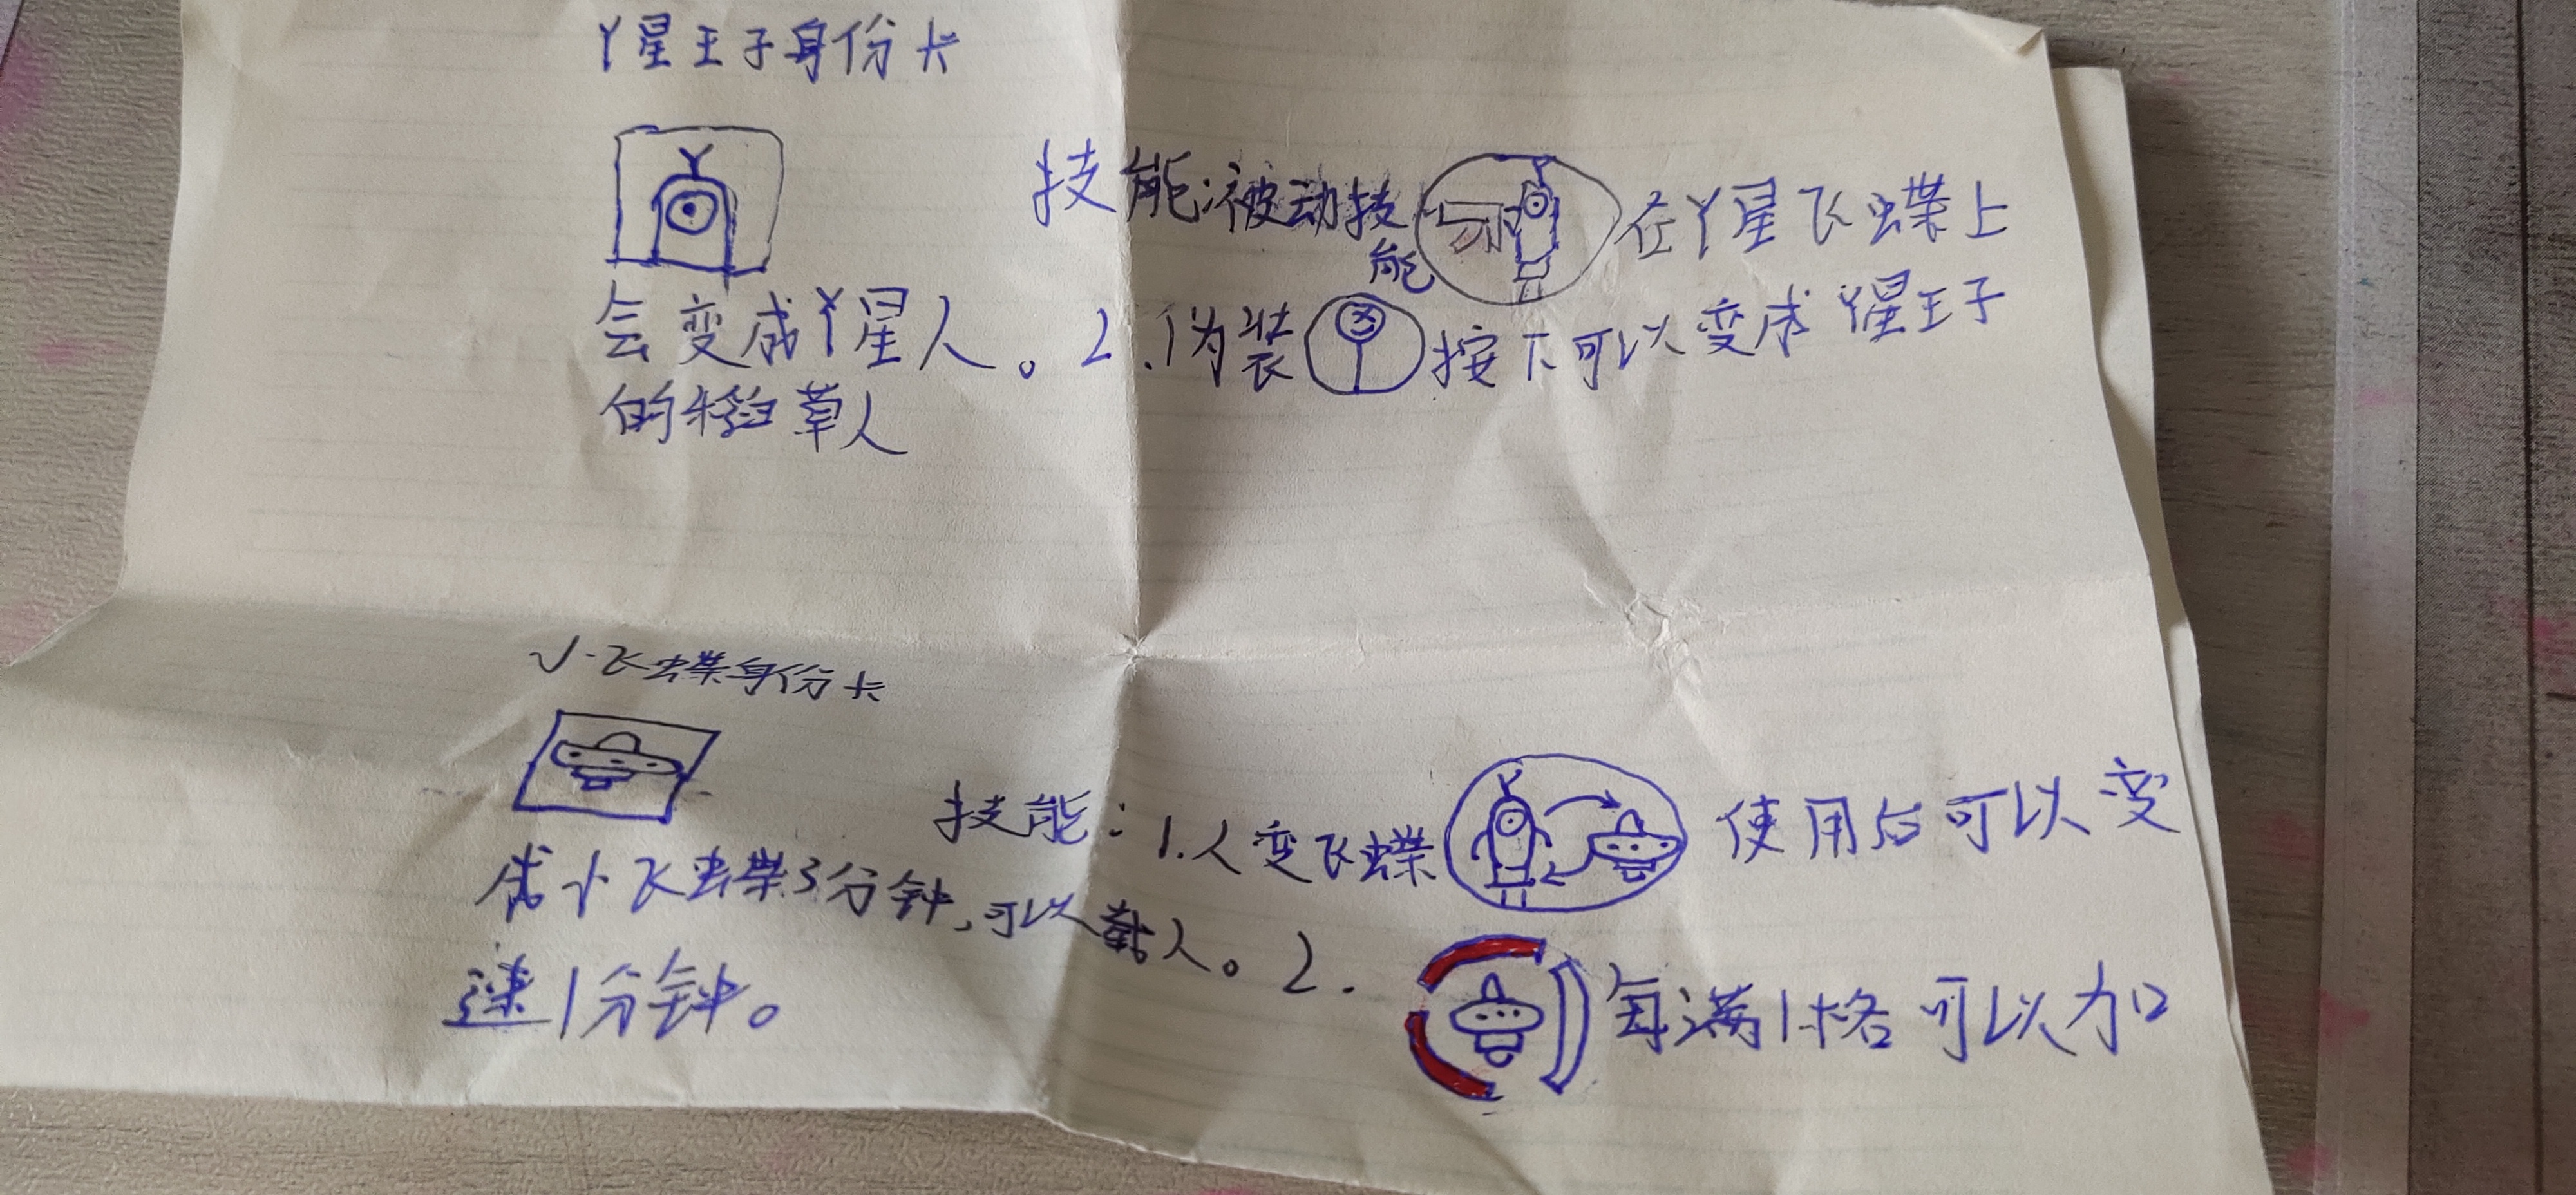 丫星王子身份卡
技能被动技能 在丫星飞碟上
会变成丫星人。2.伪装 按下可以变成丫星王子
的稻草人
飞碟身份卡
技能:1.人变飞碟 使用后可以变
成小飞碟3分钟,可以载人。2. 每满1格可以加
速1分钟。